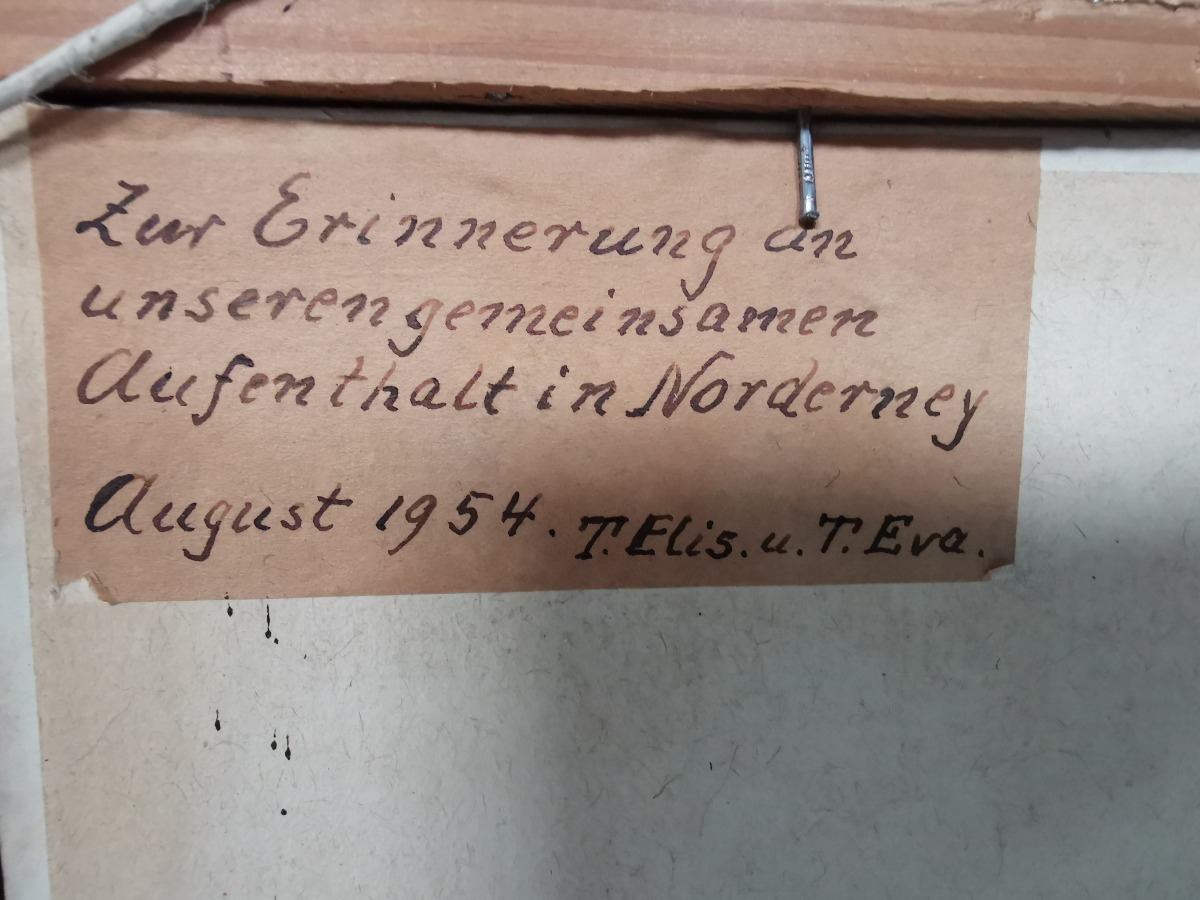 Zur Erinnerung an
unseren gemeinsamen
Aufenthalt in Norderney
August 1954. T. Elis. u. T. Eva.